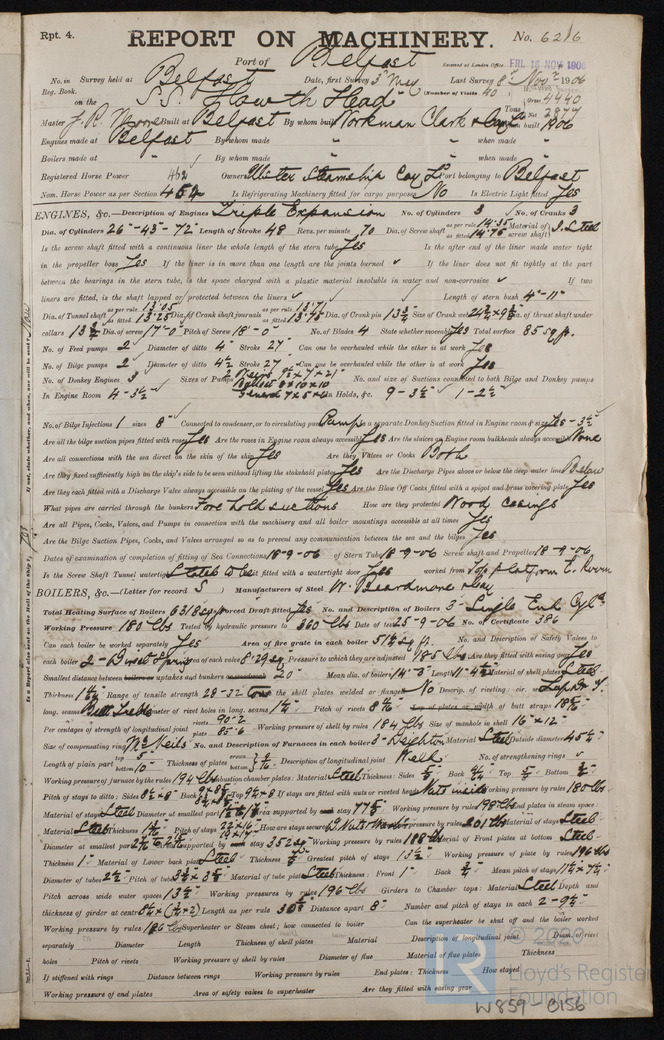 Rpt. 4. REPORT ON MACHINERY. No. 6216
Port of Belfast Received at London Office FRI. 16 NOV 1906
No. in Survey held at Belfast Date, first Survey 3rd May Last Survey 8th Novr 1906
Reg. Book. (Number of Visits 40)
on the S.S. "Howth Head" Gross 4440
Tons Net 2877
Master J. R. Moore Built at Belfast By whom built Workman Clark & Coy Ld When built 1906
Engines made at Belfast By whom made " when made "
Boilers made at " By whom made " when made "
Registered Horse Power 462 Owners Ulster Steamship Coy Ld Port belonging to Belfast
Nom. Horse Power as per Section 454 Is Refrigerating Machinery fitted for cargo purposes No Is Electric Light fitted Yes
ENGINES, &c.—Description of Engines Triple Expansion No. of Cylinders 3 No. of Cranks 3
Dia. of Cylinders 26"-43"-72" Length of Stroke 48 Revs. per minute 70 Dia. of Screw shaft as per rule 14.35 as fitted 14.75 Material of screw shaft I. Steel
Is the screw shaft fitted with a continuous liner the whole length of the stern tube Yes Is the after end of the liner made water tight
in the propeller boss Yes If the liner is in more than one length are the joints burned ✓ If the liner does not fit tightly at the part
between the bearings in the stern tube, is the space charged with a plastic material insoluble in water and non-corrosive ✓ If two
liners are fitted, is the shaft lapped or protected between the liners ✓ Length of stern bush 4'-11"
Dia. of Tunnel shaft as per rule 13.05 as fitted 13.25 Dia. of Crank shaft journals as per rule 13.71 as fitted 13.75 Dia. of Crank pin 13¾ Size of Crank webs 24½ x 9½ Dia. of thrust shaft under
collars 13¾ Dia. of screw 17'-0" Pitch of Screw 18'-0" No. of Blades 4 State whether moveable Yes Total surface 85 sq ft.
No. of Feed pumps 2 Diameter of ditto 4" Stroke 27" Can one be overhauled while the other is at work Yes
No. of Bilge pumps 2 Diameter of ditto 4½ Stroke 27 Can one be overhauled while the other is at work Yes
No. of Donkey Engines 3 Sizes of Pumps 2 Weirs 9½ x 7 x 21" No. and size of Suctions connected to both Bilge and Donkey pumps
Ballast 9 x 10 x 10
In Engine Room 4-3½" General 7 x 5 x 6 In Holds, &c. 9-3½" 1-2½"
No. of Bilge Injections 1 sizes 8" Connected to condenser, or to circulating pump Pump Is a separate Donkey Suction fitted in Engine room & size Yes-3½"
Are all the bilge suction pipes fitted with roses Yes Are the roses in Engine room always accessible Yes Are the sluices on Engine room bulkheads always accessible None
Are all connections with the sea direct on the skin of the ship Yes Are they Valves or Cocks Both
Are they fixed sufficiently high on the ship's side to be seen without lifting the stokehold plates Yes Are the Discharge Pipes above or below the deep water line Below
Are they each fitted with a Discharge Valve always accessible on the plating of the vessel Yes Are the Blow Off Cocks fitted with a spigot and brass covering plate Yes
What pipes are carried through the bunkers Fore hold suctions How are they protected Wood casings
Are all Pipes, Cocks, Valves, and Pumps in connection with the machinery and all boiler mountings accessible at all times Yes
Are the Bilge Suction Pipes, Cocks, and Valves arranged so as to prevent any communication between the sea and the bilges Yes
Dates of examination of completion of fitting of Sea Connections 18-9-06 of Stern Tube 18-9-06 Screw shaft and Propeller 18-9-06
Is the Screw Shaft Tunnel watertight Stated to be Is it fitted with a watertight door Yes worked from Top platform E. Room
BOILERS, &c.—(Letter for record S) Manufacturers of Steel W. Beardmore & Coy
Total Heating Surface of Boilers 6318 sq ft Is Forced Draft fitted Yes No. and Description of Boilers 3 Single End Cyl.
Working Pressure 180 Lbs Tested by hydraulic pressure to 360 Lbs Date of test 25-9-06 No. of Certificate 386
Can each boiler be worked separately Yes Area of fire grate in each boiler 51½ sq ft. No. and Description of Safety Valves to
each boiler 2-Direct Spring Area of each valve 8.29 sq" Pressure to which they are adjusted 185 Lbs Are they fitted with easing gear Yes
Smallest distance between boilers or uptakes and bunkers or woodwork 20" Mean dia. of boilers 14'-3" Length 11'-4½ Material of shell plates Steel
Range of tensile strength 28-32 tons Are the shell plates welded or flanged No Descrip. of riveting: cir. seams
Pitch of rivets Lap of plates or width of butt straps 18⅝"
Per centages of strength of longitudinal joint rivets 90.2 plate 85.6 Working pressure of shell by rules 184 Lbs Size of manhole in shell 16" x 12"
Size of compensating ring McNeils No. and Description of Furnaces in each boiler 3-Deighton Material Steel Outside diameter 45¼"
Length of plain part Thickness of plates Description of longitudinal joint Weld No. of strengthening rings ✓
Working pressure of furnace by the rules 194 Lbs Combustion chamber plates: Material Steel Thickness: Sides Back Top Bottom
Pitch of stays to ditto: Sides Back Top If stays are fitted with nuts or riveted heads Nuts inside Working pressure by rules 180 Lbs
Material of stays Steel Diameter at smallest part Area supported by each stay Working pressure by rules 198 Lbs End plates in steam space:
Material Steel Thickness Pitch of stays How are stays secured Working pressure by rules 201 Lbs Material of stays Steel
Diameter at smallest part Area supported by each stay 352 sq" Working pressure by rules 188 Lbs Material of Front plates at bottom Steel
Thickness 1" Material of Lower back plate Steel Thickness Greatest pitch of stays 13½" Working pressure of plate by rules 196 Lbs
Diameter of tubes 2½" Pitch of tubes Material of tube plates Steel Thickness: Front 1" Back Mean pitch of stays
Pitch across wide water spaces 13½" Working pressures by rules 196 Lbs Girders to Chamber tops: Material Steel Depth and
thickness of girder at centre Length as per rule Distance apart 8" Number and pitch of stays in each 2-9½"
Working pressure by rules Superheater or Steam chest; how connected to boiler Can the superheater be shut off and the boiler worked
separately Diameter Length Thickness of shell plates Material Description of longitudinal joint Diam. of rivet
holes Pitch of rivets Working pressure of shell by rules Diameter of flue Material of flue plates Thickness
If stiffened with rings Distance between rings Working pressure by rules End plates: Thickness How stayed
Working pressure of end plates Area of safety valves to superheater Are they fitted with easing gear
© 2020
Lloyd's Register
Foundation
W859-0156